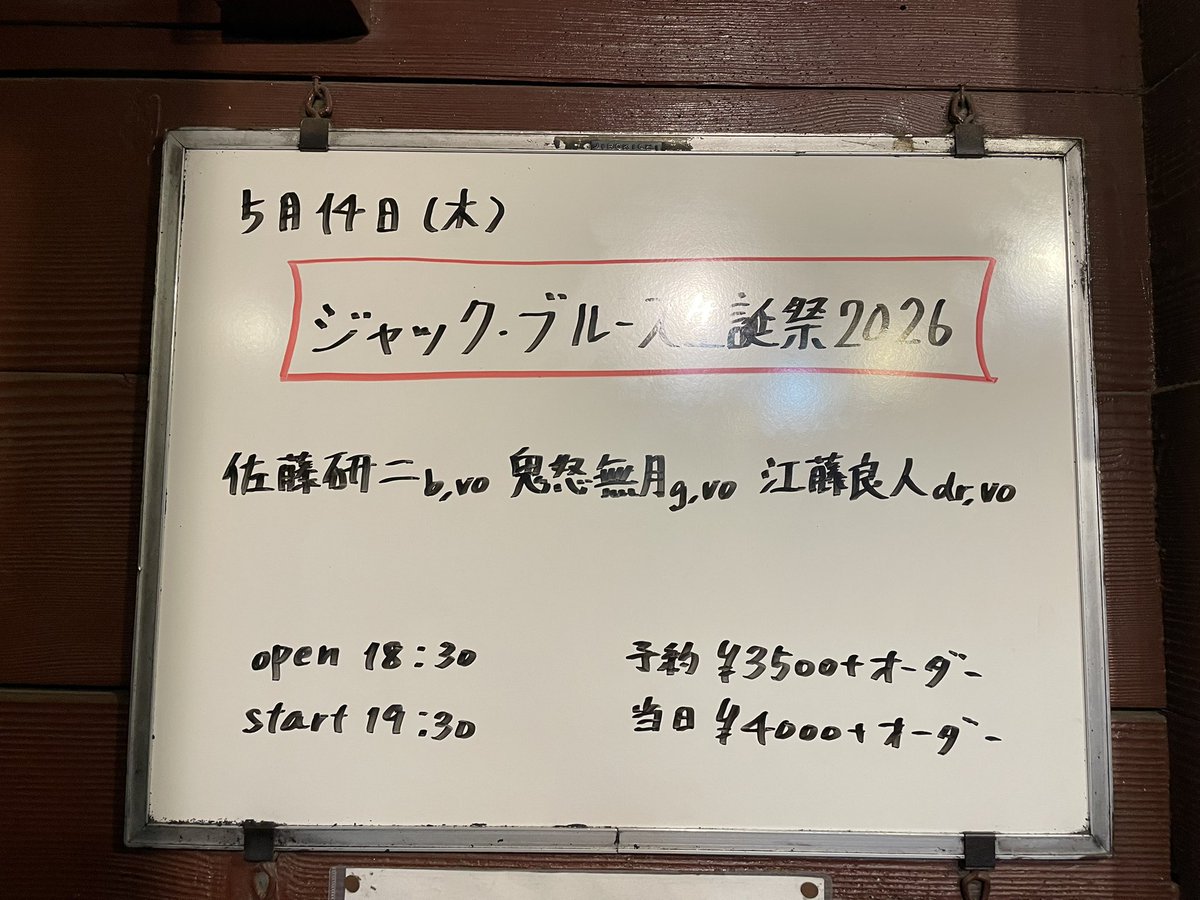 5月14日(木)
ジャック・ブルース生誕祭2026
佐藤研二b,vo 鬼怒無月g,vo 江藤良人dr,vo
open 18:30 予約 ¥3500+オーダー
start 19:30 当日 ¥4000+オーダー